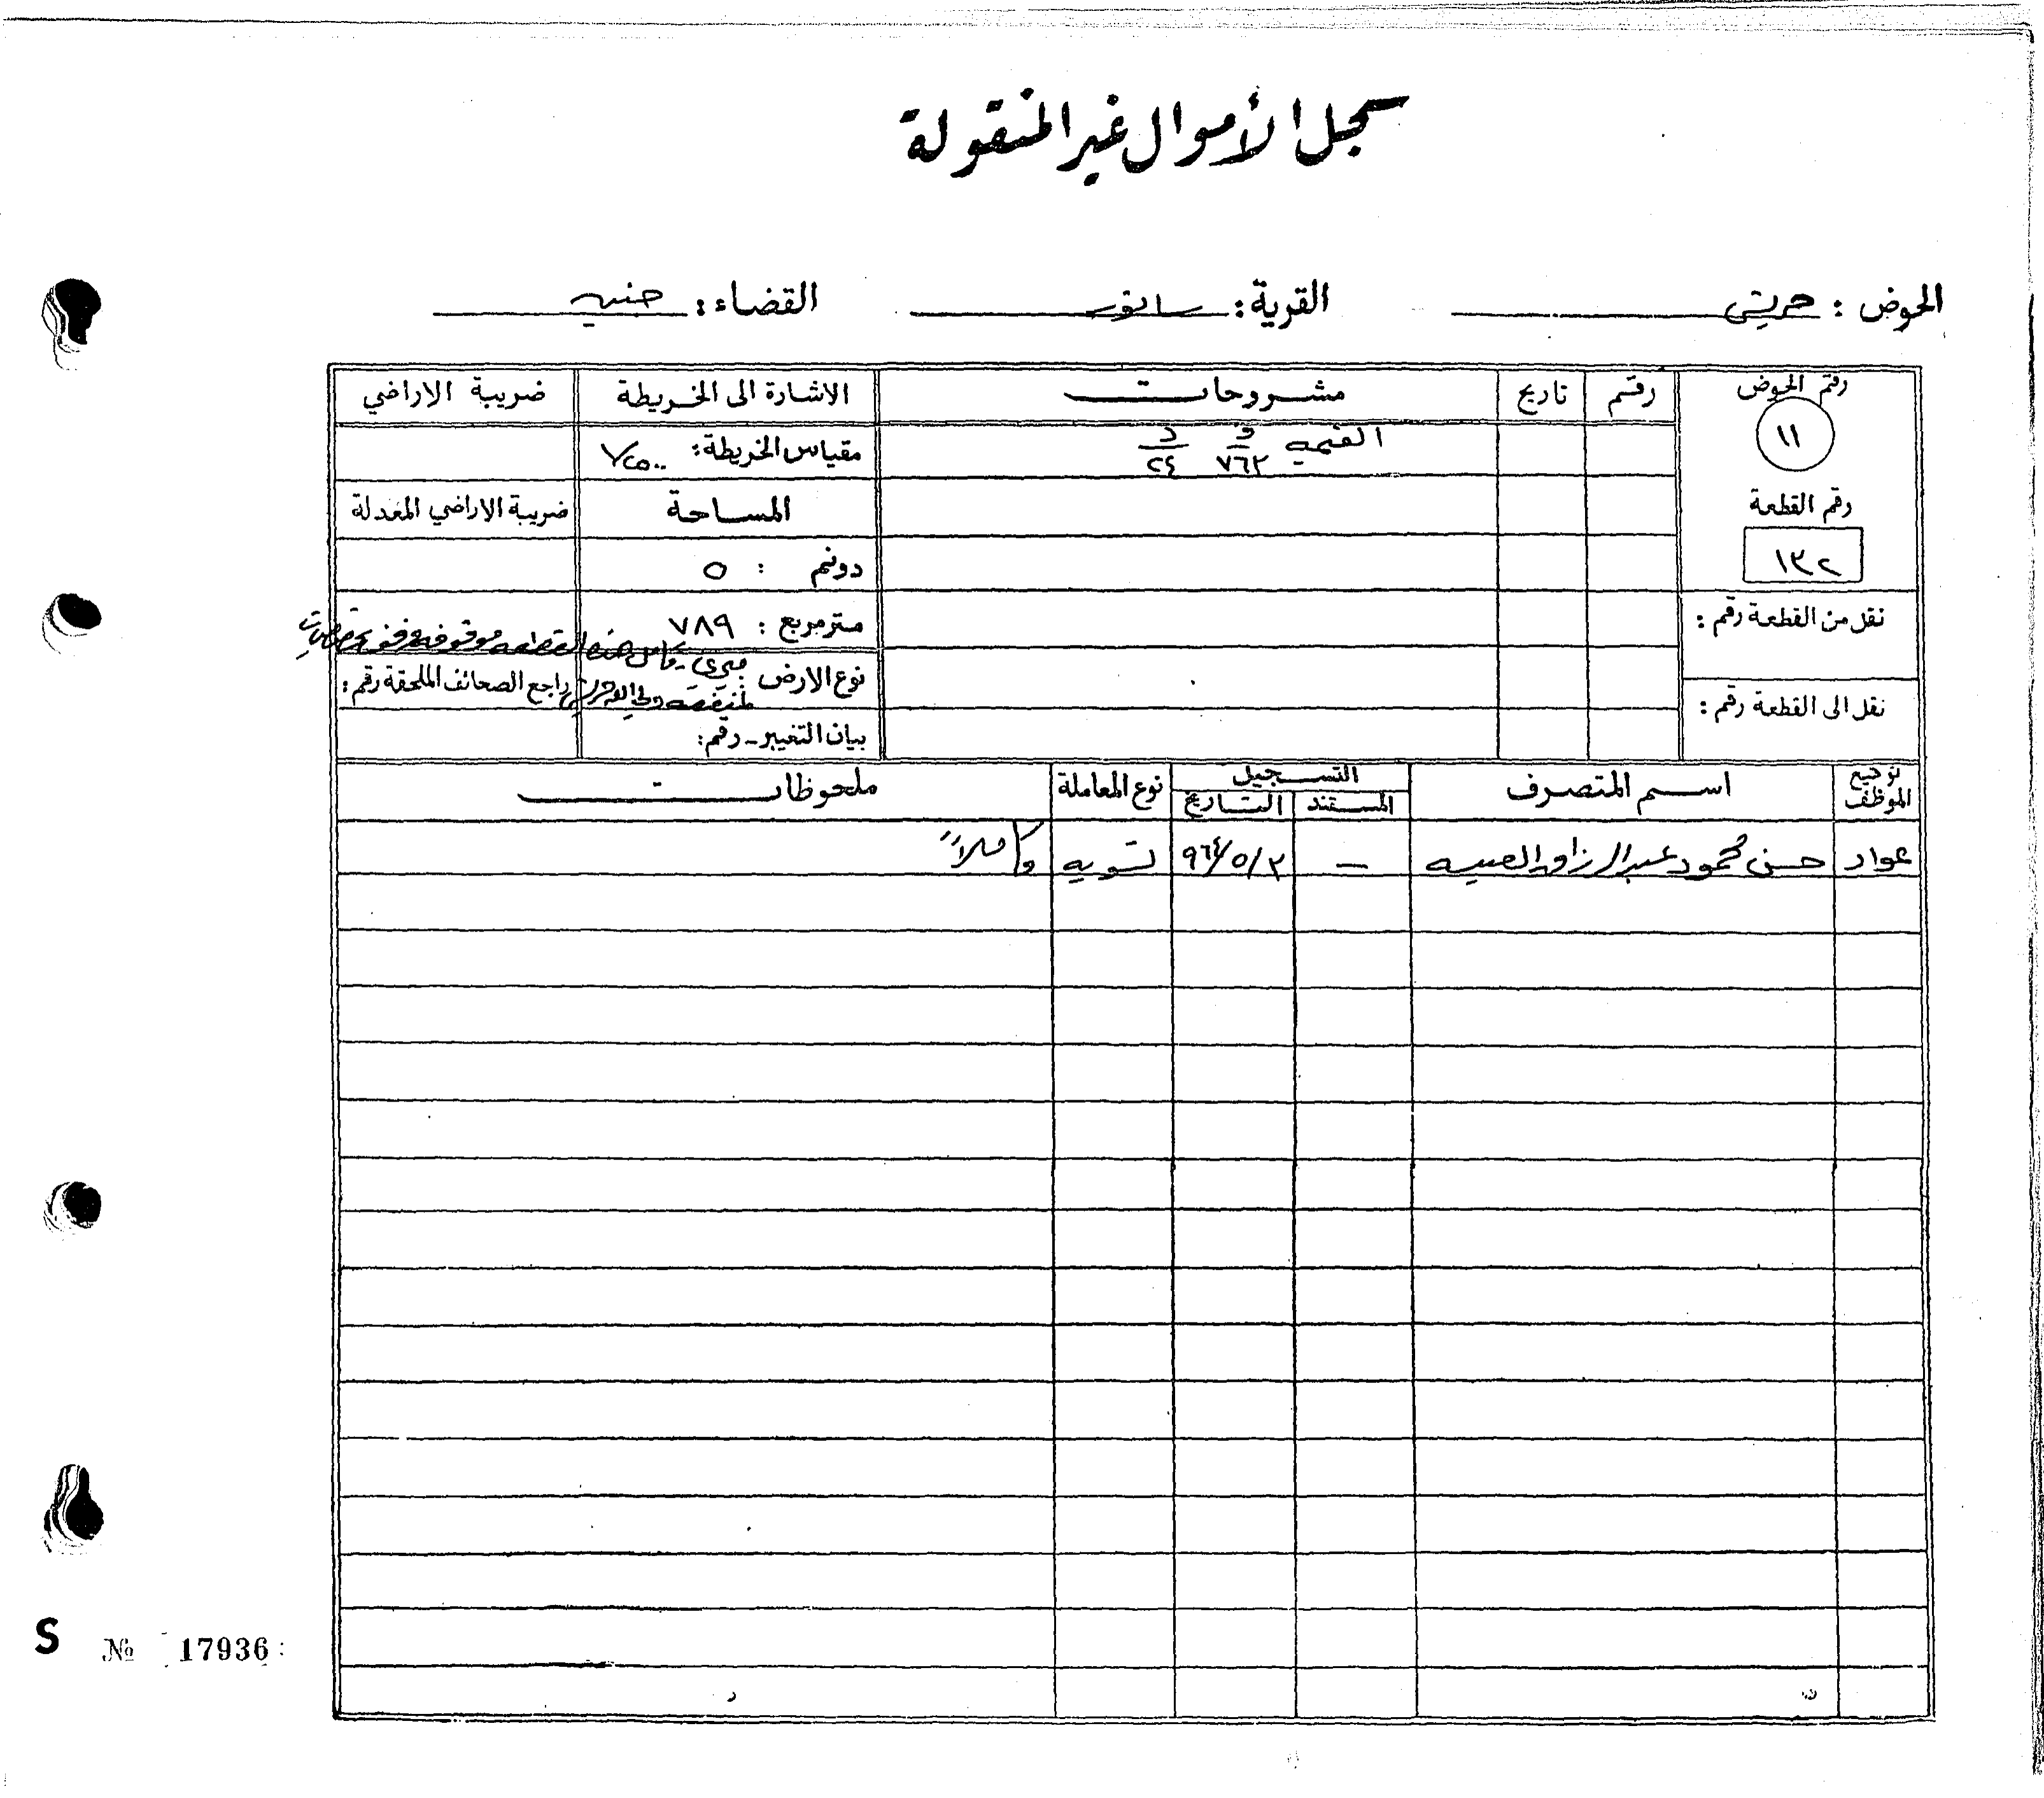 سجل الأموال غير المنقولة
الحوض : حريش القرية : سانور القضاء : جنين
رقم الحوض رقم تاريخ مشروحات الاشارة الى الخريطة ضريبة الاراضي
١١ القيمة ف ٧٦٢ د ٢٤ مقياس الخريطة: ١/٢٥٠٠
رقم القطعة المساحة ضريبة الاراضي المعدلة
١٣٢ دونم : ٥
نقل من القطعة رقم : متر مربع : ٧٨٩
نوع الارض ميري كامل هذه القطعة موقوفة وقف
راجع الصحائف الملحقة رقم :
نقل الى القطعة رقم :
بيان التغيير - رقم:
توقيع الموظف اسم المتصرف التسجيل المستند التاريخ نوع المعاملة ملحوظات
عواد حسن محمود عبد الرزاق العيسه — ٩٦٤/٥/٢ تسويه كاملاً
S № 17936